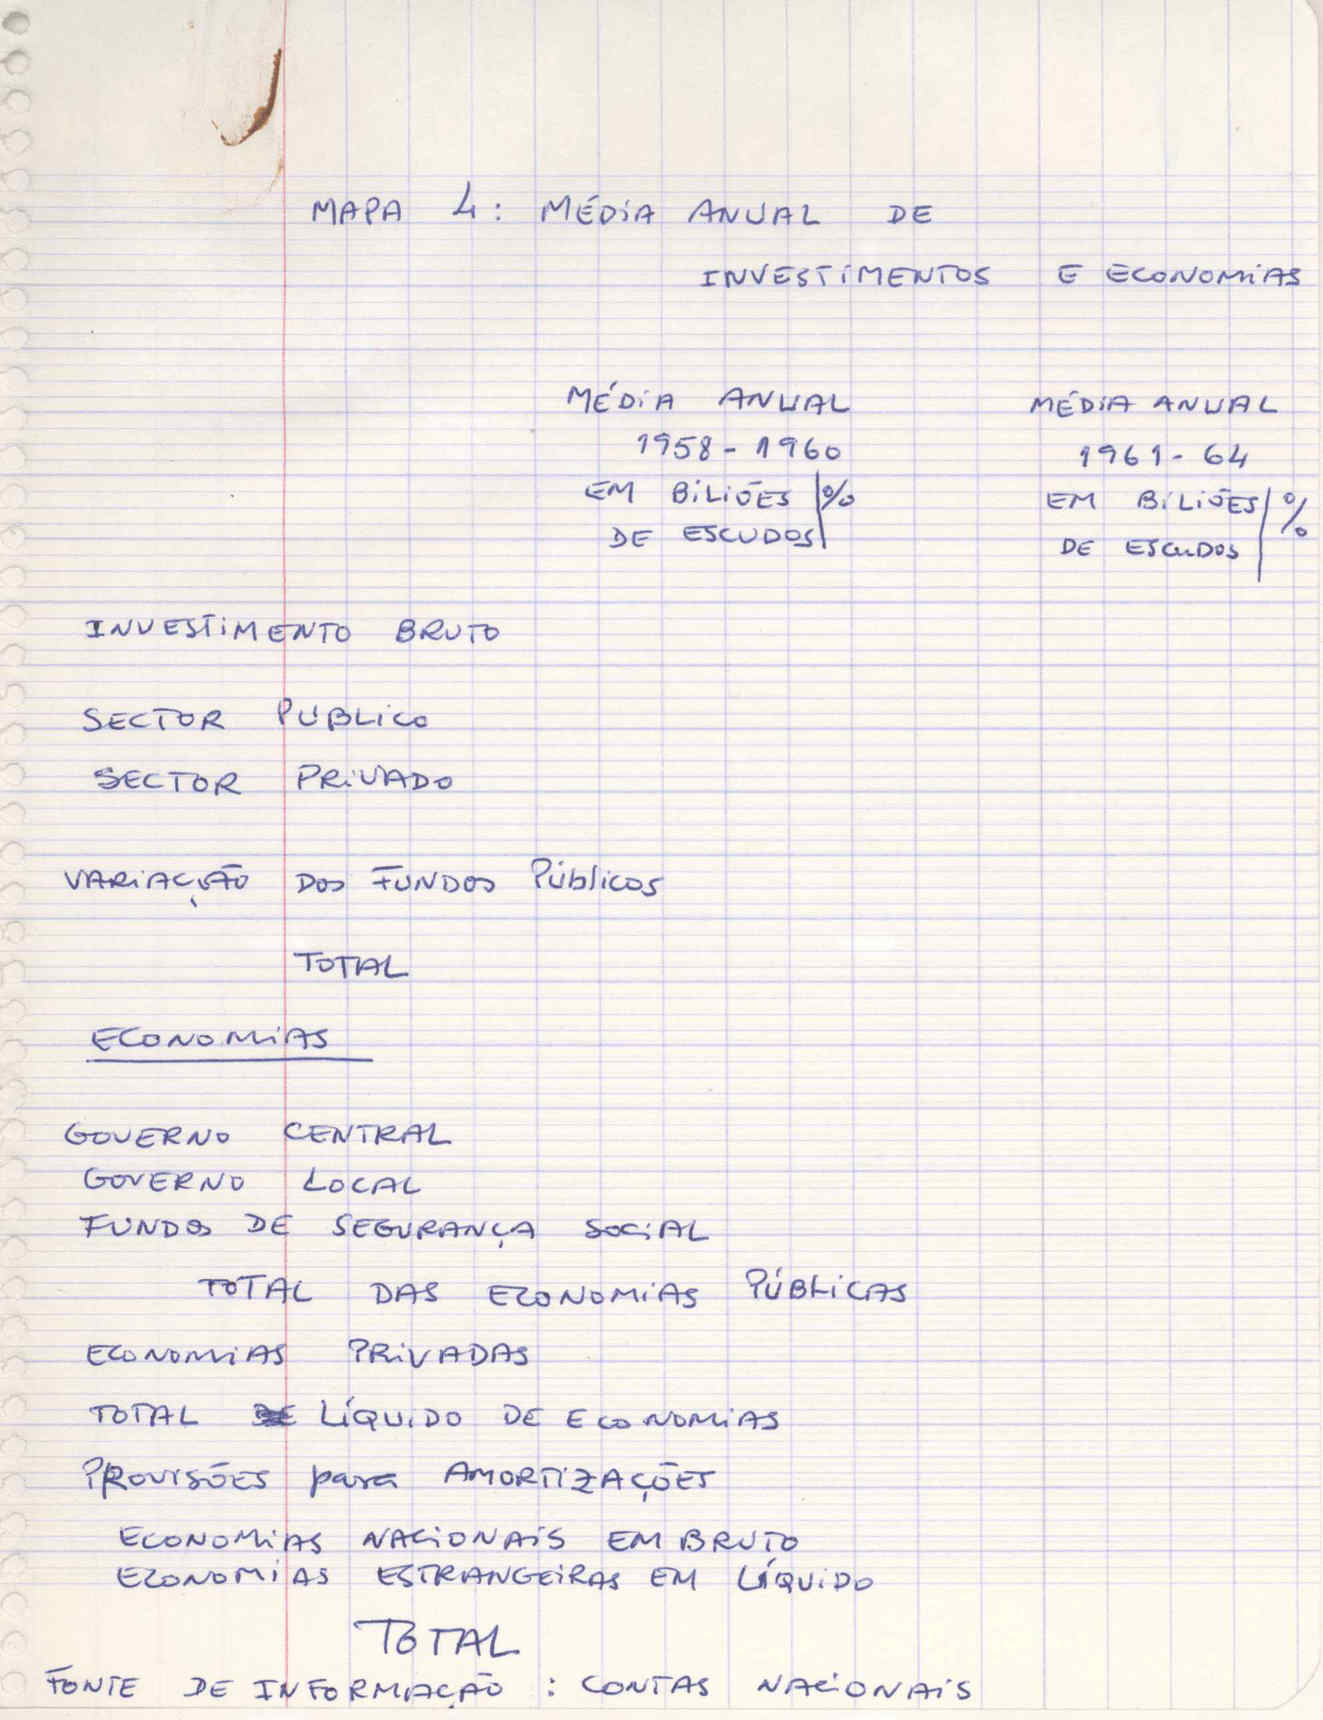 MAPA 4: MÉDIA ANUAL DE
INVESTIMENTOS E ECONOMIAS
MÉDIA ANUAL MÉDIA ANUAL
1958-1960 1961-64
EM BILIÕES % EM BILIÕES %
DE ESCUDOS DE ESCUDOS
INVESTIMENTO BRUTO
SECTOR PÚBLICO
SECTOR PRIVADO
VARIAÇÃO DOS FUNDOS Públicos
TOTAL
ECONOMIAS
GOVERNO CENTRAL
GOVERNO LOCAL
FUNDOS DE SEGURANÇA SOCIAL
TOTAL DAS ECONOMIAS PÚBLICAS
ECONOMIAS PRIVADAS
TOTAL LÍQUIDO DE ECONOMIAS
PROVISÕES para AMORTIZAÇÕES
ECONOMIAS NACIONAIS EM BRUTO
ECONOMIAS ESTRANGEIRAS EM LÍQUIDO
TOTAL
FONTE DE INFORMAÇÃO : CONTAS NACIONAIS